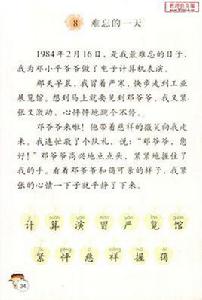 8 难忘的一天
1984年2月16日，是我最难忘的日子。
我为邓小平爷爷做了电子计算机表演。
那天早晨，我冒着严寒，快步走到工业
展览馆。想到马上就要见到邓爷爷，我又紧
张又激动，心怦怦地跳个不停。
邓爷爷来啦！他带着慈祥的微笑向我走
来。我连忙敬了个队礼，说：“邓爷爷，您
好！”邓爷爷高兴地点点头，紧紧地握住了
我的手。看着邓爷爷和蔼可亲的样子，我紧
张的心情一下子就平静了下来。
计 算 演 冒 严 览 馆
紧 怦 慈 祥 握 蔼
34